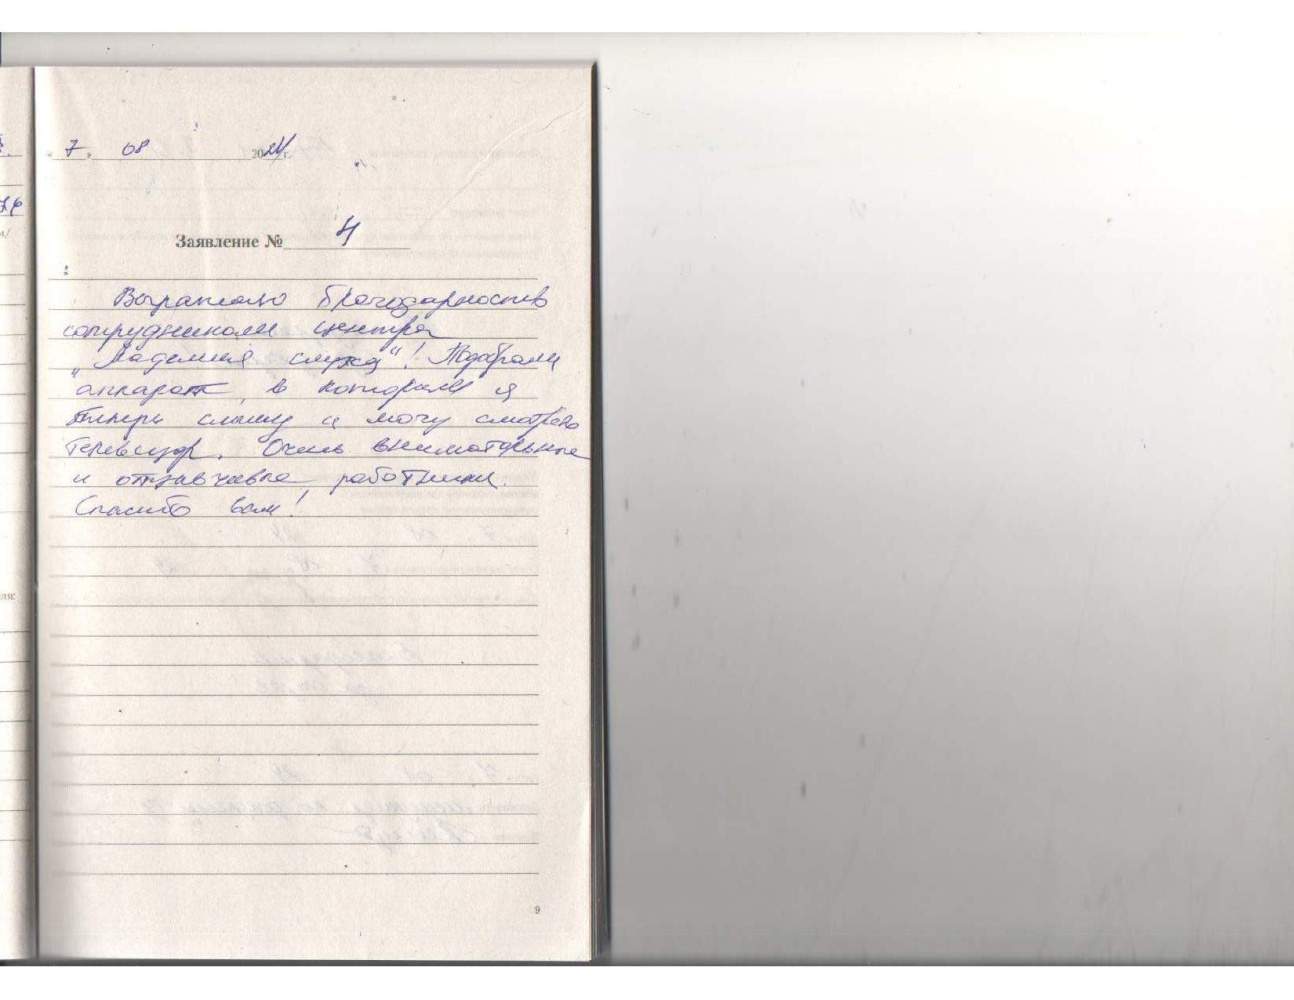 " 7 " 08 2024 г.
Заявление № 4
Выражаю благодарность
сотрудникам центра
"Академия слуха"! Подобрали
аппарат, в котором я
теперь слышу и могу смотреть
телевизор. Очень внимательные
и отзывчивые работники.
Спасибо вам!
9